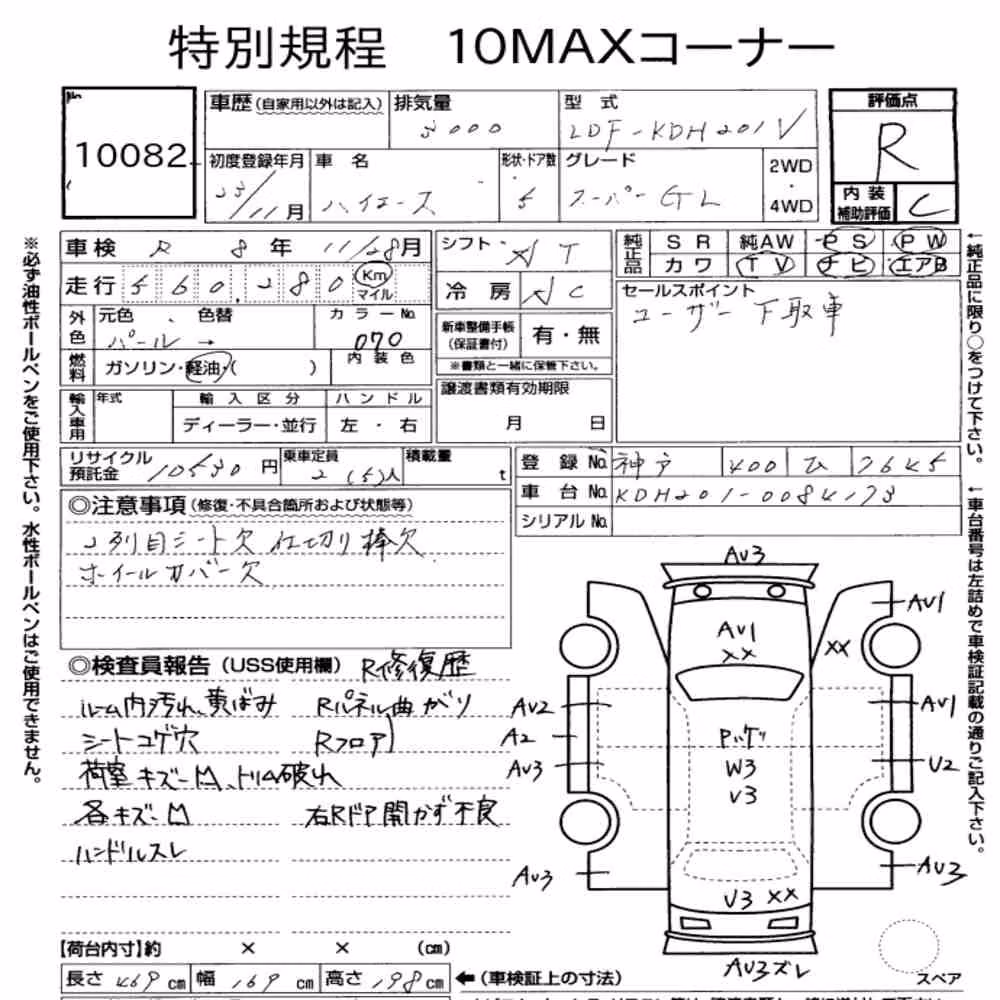 特別規程 10MAXコーナー
No 10082
車歴（自家用以外は記入） 排気量 3000 型式 LDF-KDH201V
初度登録年月 23/11月 車名 ハイエース 形状・ドア数 5 グレード スーパーGL 2WD・4WD
評価点 R
内装補助評価 C
車検 R 8年 11/28月
走行 560,280 Km マイル
外色 元色 パール → 色替 カラーNo. 070
燃料 ガソリン・軽油・（ ） 内装色
輸入車用 年式 輸入区分 ディーラー・並行 ハンドル 左・右
リサイクル預託金 10530円 乗車定員 2(5)人 積載量 t
シフト AT
冷房 AC
新車整備手帳（保証書付） 有・無
※書類と一緒に保管下さい。
譲渡書類有効期限
月 日
純正品 SR 純AW PS PW
カワ TV ナビ エアB
セールスポイント
ユーザー下取車
登録No. 神戸 400 ひ 7645
車台No. KDH201-0084173
シリアルNo.
◎注意事項（修復・不具合箇所および状態等）
2列目シート欠 仕切り棒欠
ホイールカバー欠
◎検査員報告（USS使用欄） R修復歴
ルーム内汚れ、黄ばみ Rパネル曲がり
シートコゲ穴 Rフロア
荷室キズ－凹、トリム破れ
各キズ－凹 右Rドア開かず不良
ハンドルスレ
【荷台内寸】約 × × (cm)
長さ 469 cm 幅 169 cm 高さ 198 cm ←（車検証上の寸法）
※必ず油性ボールペンをご使用下さい。水性ボールペンはご使用できません。
←純正品に限り○をつけて下さい。
←車台番号は左詰めで車検証記載の通りご記入下さい。
AV3
AV1
XX
AV1
XX
AV2
AV1
A2
Pパケリ
W3
V3
AV3
U2
AV3
AV3
U3 XX
AV3ズレ
スペア